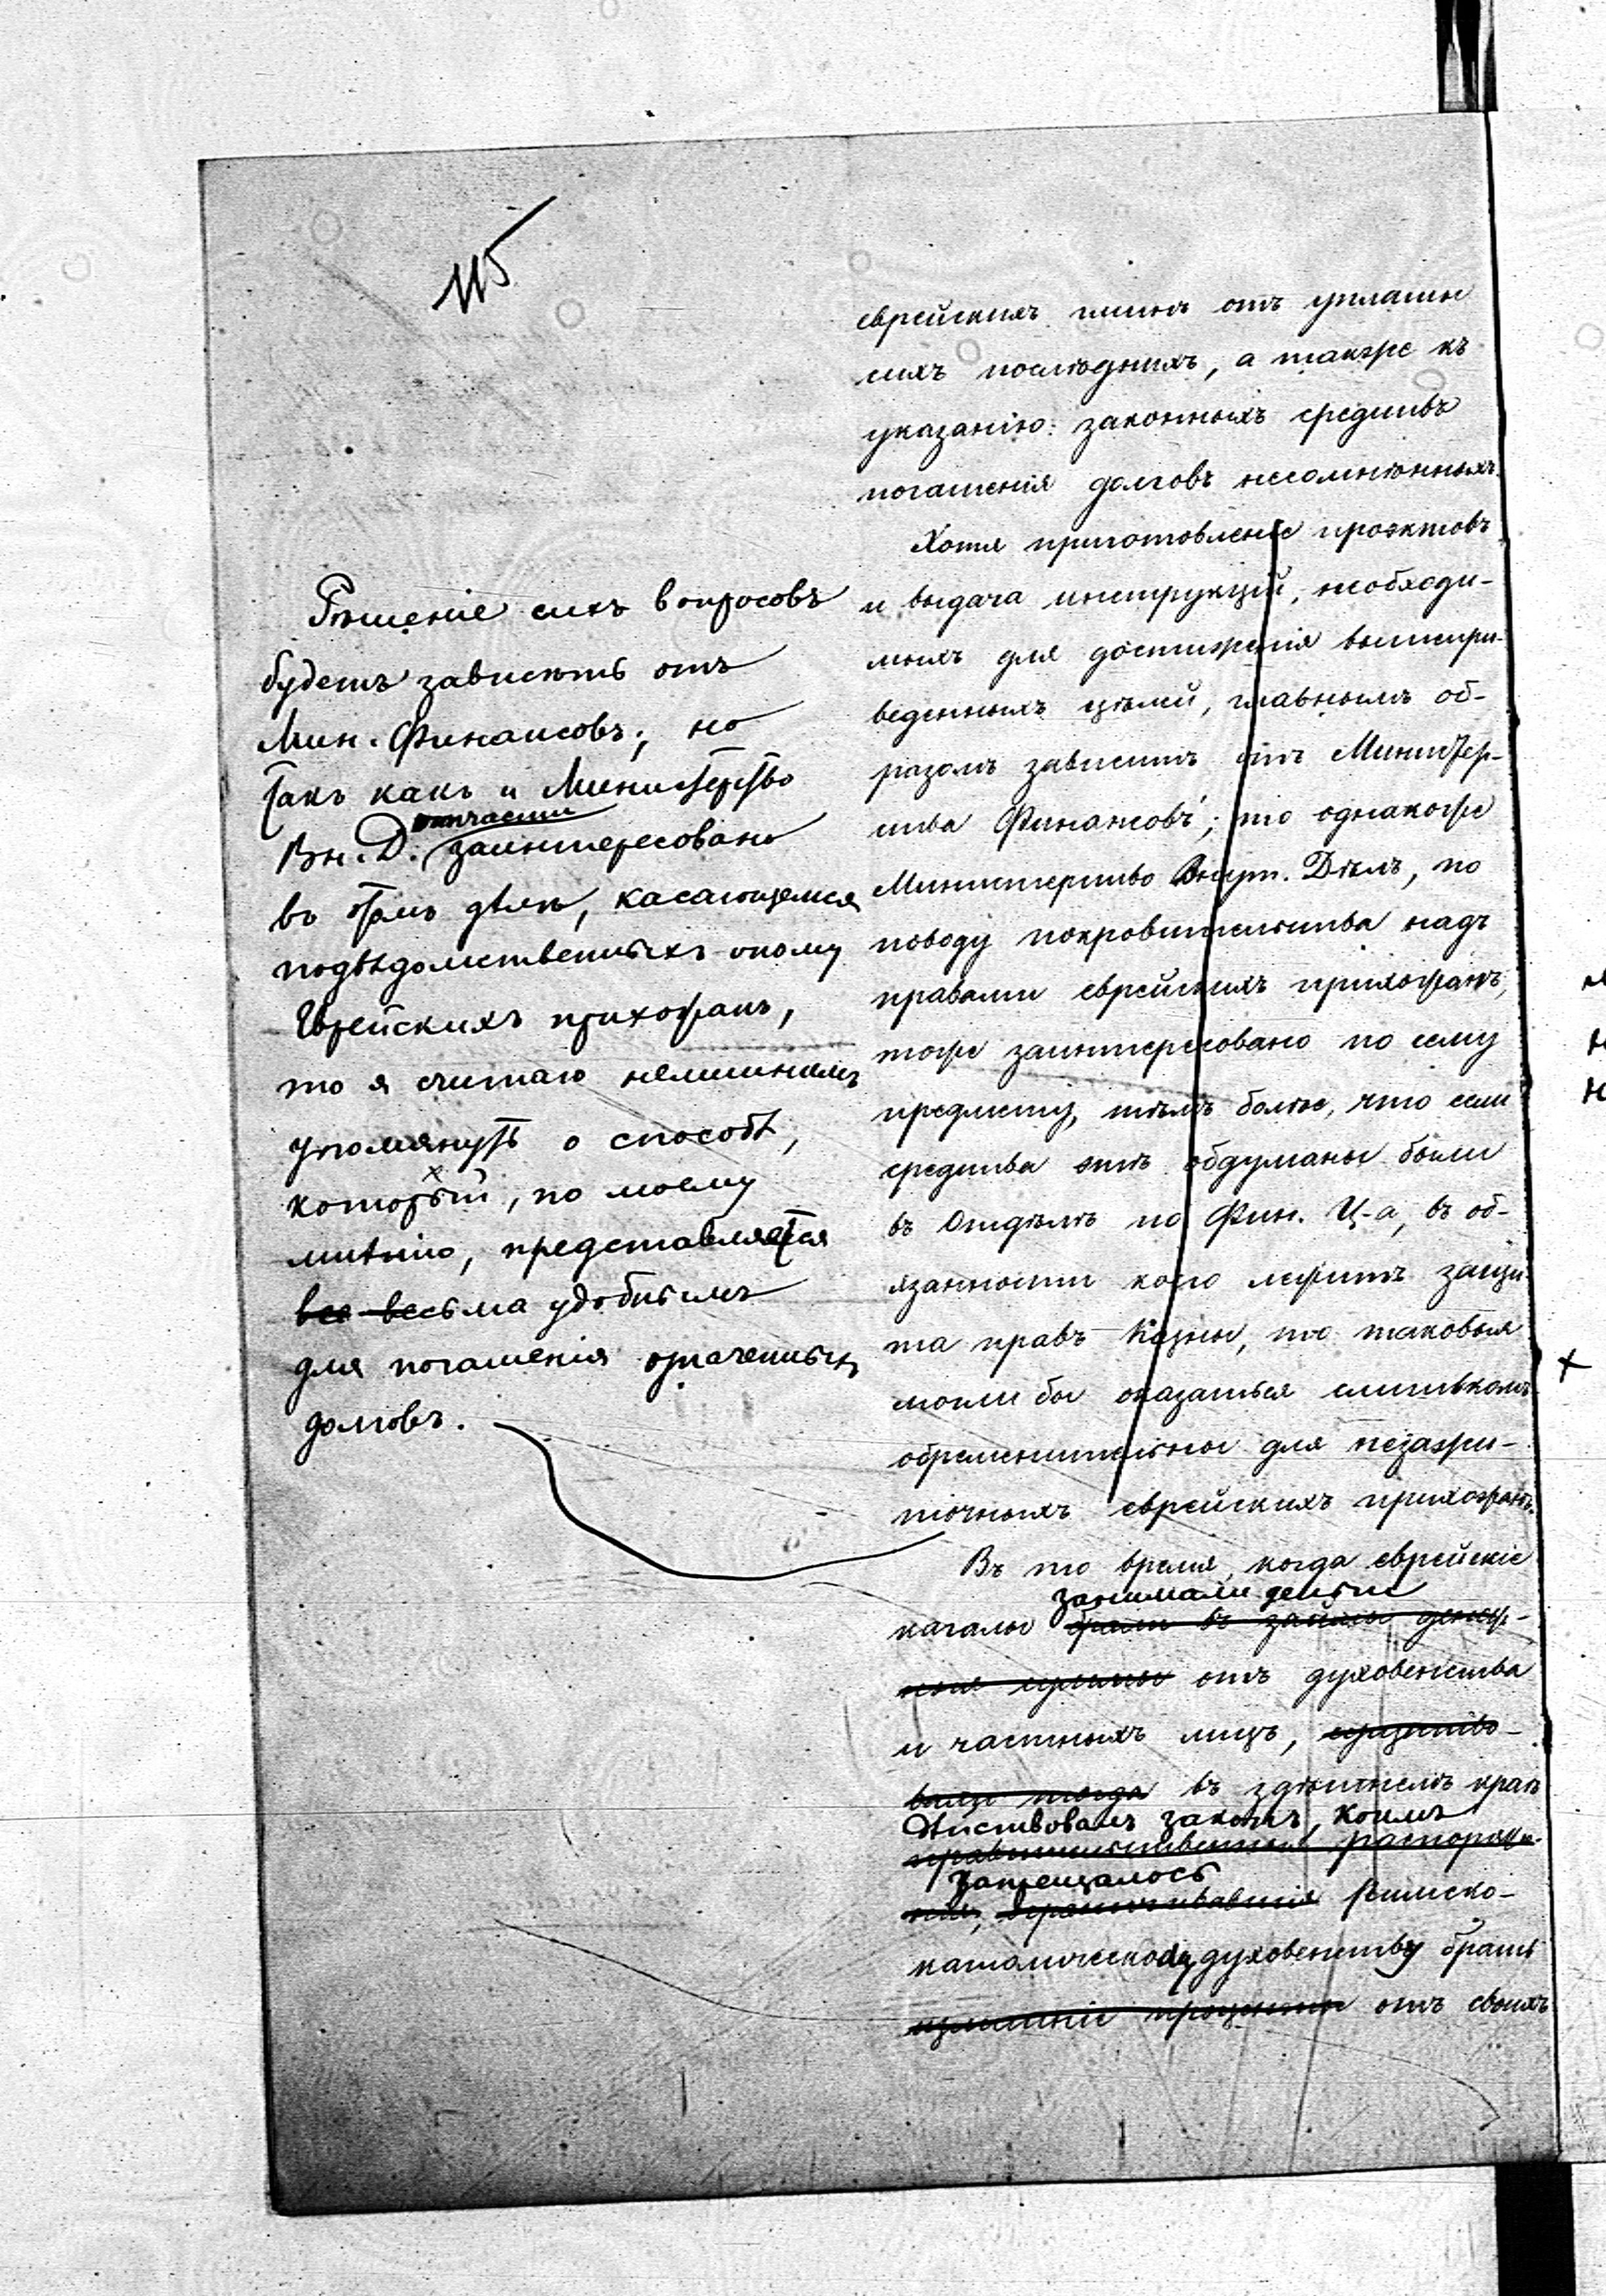 115
Рѣшеніе сихъ вопросовъ
будетъ зависѣть отъ
Мин. Финансовъ; но
такъ какъ и Министерство
отчасти
Вн. Д. заинтересовано
въ этомъ дѣлѣ, касающемся
подвѣдомственныхъ оному
Еврейскихъ прихожанъ,
то я считаю нелишнимъ
упомянуть о способѣ,
который, по моему
мнѣнію, представляется
все весьма удобнымъ
для погашенія означенныхъ
долговъ.
еврейскихъ гминъ отъ уплаты
сихъ послѣднихъ, а также къ
указанію законныхъ средствъ
погашенія долговъ несомнѣнныхъ.
Хотя приготовленіе проэктовъ
и выдача инструкцій, необходи-
мыхъ для достиженія вышепри-
веденныхъ цѣлей, главнымъ об-
разомъ зависитъ отъ Министер-
ства Финансовъ; то однакоже
Министерство Внутр. Дѣлъ, по
поводу покровительства надъ
правами еврейскихъ прихожанъ,
тоже заинтересовано по сему
предмету, тѣмъ болѣе, что если
средства эти обдуманы были
въ Отдѣлѣ по Фин. Ц-а, въ об-
язанности коего лежитъ защи-
та правъ Казны, то таковыя
могли бы оказаться слишкомъ
обременительны для незажи-
точныхъ еврейскихъ прихожанъ.
Въ то время, когда еврейскіе
занимали деньги
кагалы брали въ займы денеж-
ныя суммы отъ духовенства
и частныхъ лицъ, существо-
вали тогда въ здѣшнемъ краѣ
дѣйствовалъ законъ, коимъ
правительственныя распоряже-
запрещалось
нія, ограничивавшія Римско-
католическому духовенству брать
излишніе проценты отъ своихъ